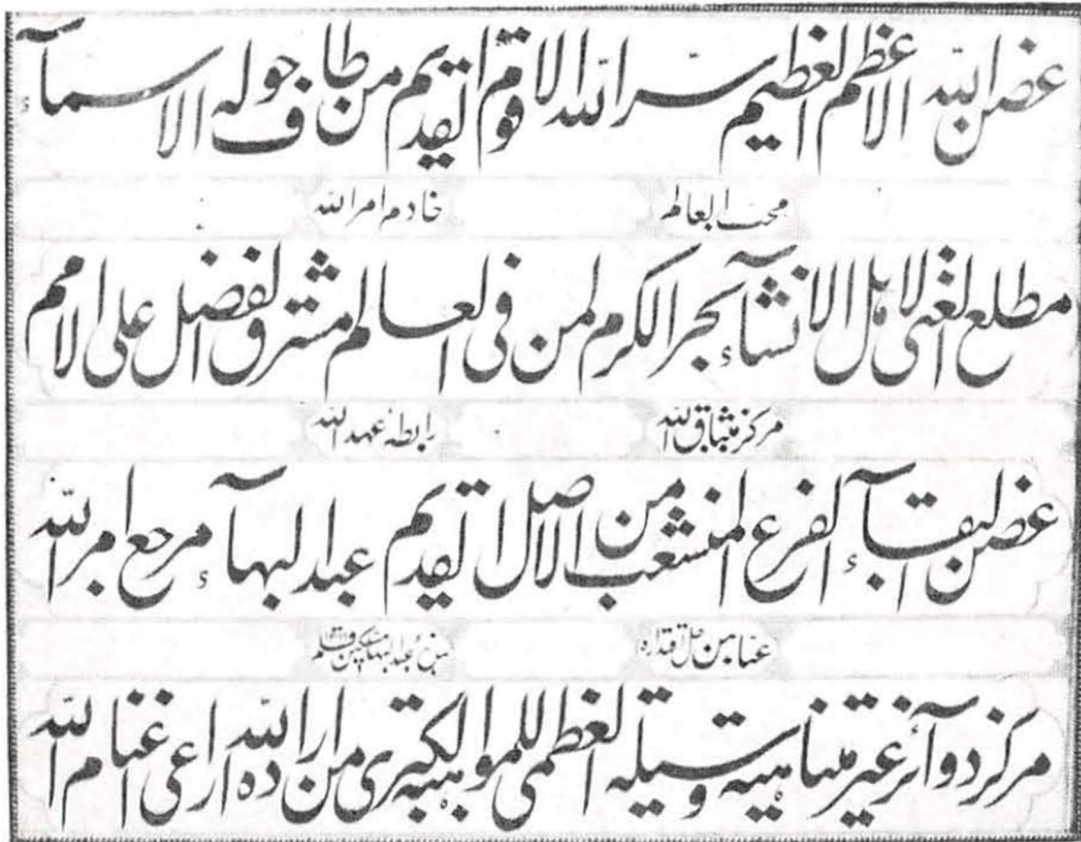 غصن الله الاعظم العظیم سر الله الاقوم القدیم من طاف حوله الاسمآء
محب العالم خادم امر الله
مطلع الغنی لاهل الانشآء بحر الکرم لمن فی العالم مشرق الفضل علی الامم
مرکز میثاق الله رابطه عهد الله
غصن البقآء الفرع المنشعب من الاصل القدیم عبد البهآء مرجع امر الله
مرکز دوآئر غیر متناهیه وسیلة العظمی للموهبة الکبری من اراده الله راعی اغنام الله